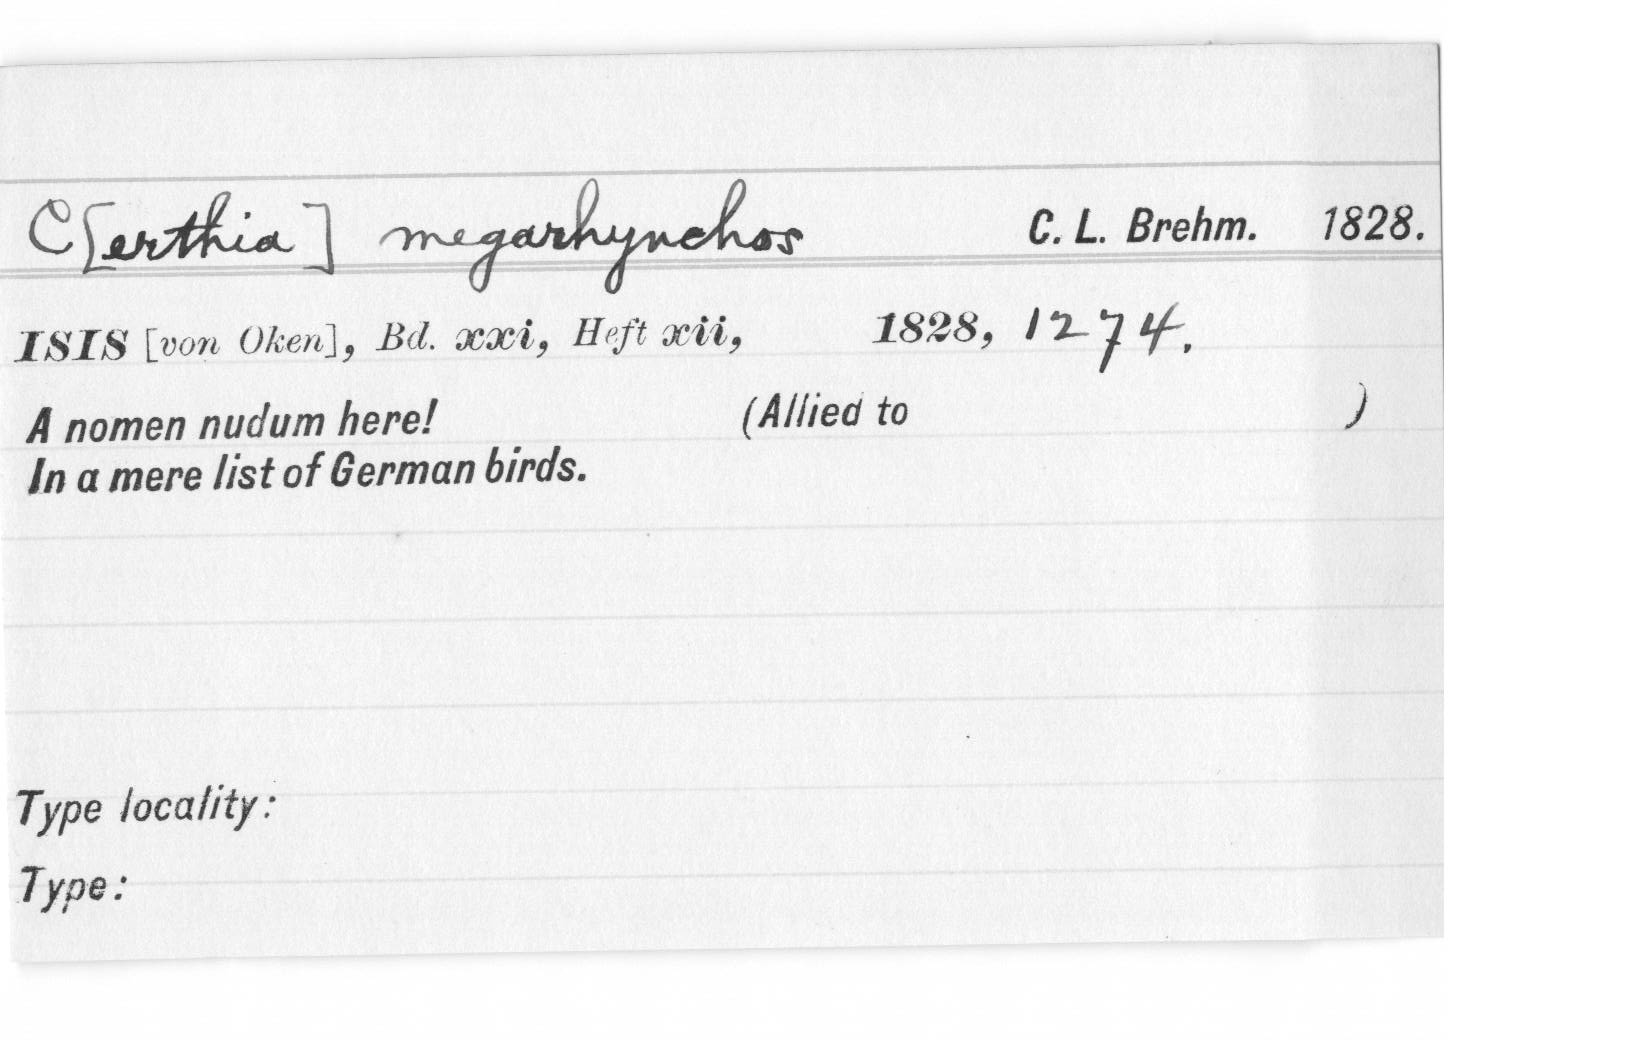 C[erthia] megarhynchos C. L. Brehm. 1828.
ISIS [von Oken], Bd. xxi, Heft xii, 1828, 1274.
A nomen nudum here! (Allied to )
In a mere list of German birds.
Type locality:
Type: